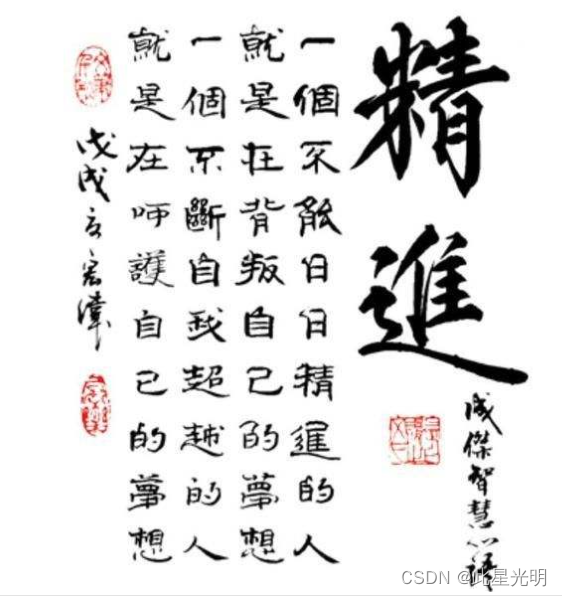 精進
成傑智慧心語
一個不能日日精進的人
就是在背叛自己的夢想
一個不斷自我超越的人
就是在呵護自己的夢想
戊戌宏偉
CSDN @此星光明